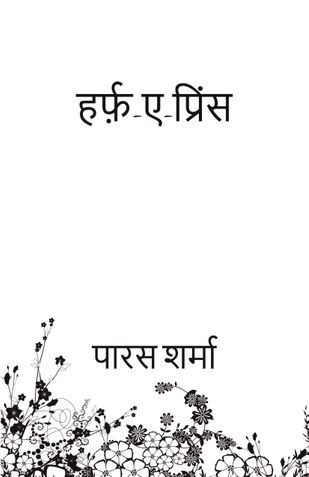 हर्फ़-ए-प्रिंस
पारस शर्मा